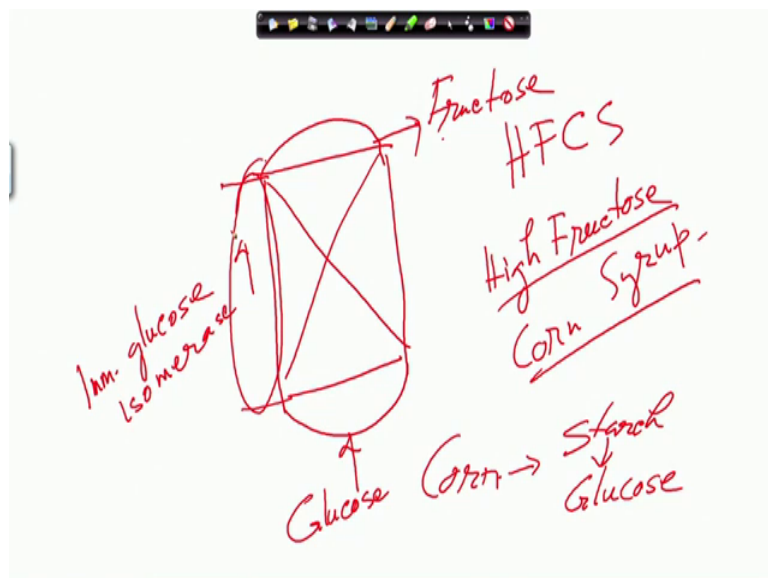 Fructose
HFCS
High Fructose
Corn Syrup.
Imm. glucose
isomerase
Glucose
Corn → Starch
↓
Glucose